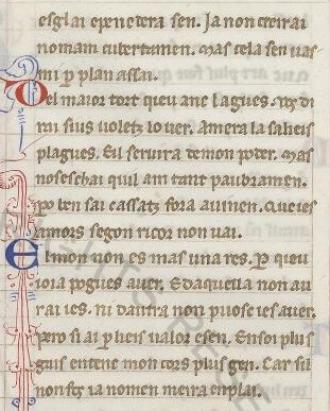 esglai e penedera sen. Ja non creirai
nomam cubertamen. Mas cela sen vas
mi ꝑ plan assai.
Del maior tort queu anc lagues. vos di
rai sius voletz lo ver. Amera la saliers
plagues. Eil servira de mon poder. Mas
noseschai quil am tant paubramen.
ꝑo ben sai cassatz fora avinen. Que ies
amors segon ricor non vai.
El mon non es mas una res. ꝑ queu
ioia pogues aver. E daquella non au
rai ies. ni dautra non puosc ies aver.
pero si ai ꝑ lieis valor e sen. En soi plus
gais entenc mon cors plus gen. Car sil
non fos ia no men meira en plai.